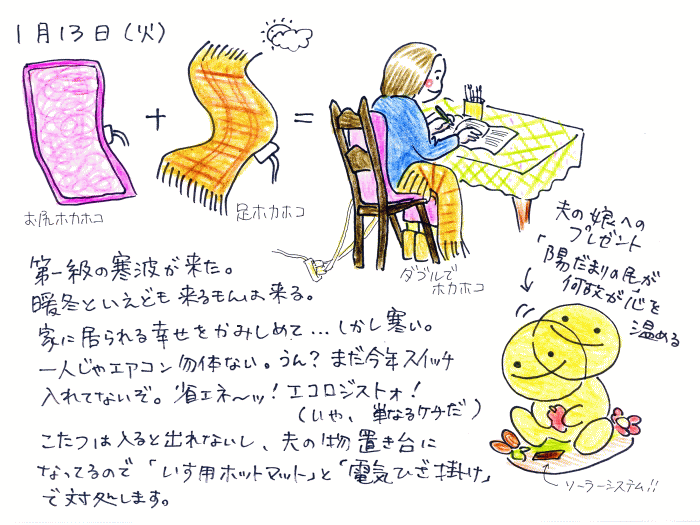 1月13日(火)
+
=
お尻ホカホコ
足ホカホコ
ダブルで
ホカホコ
夫の娘への
プレゼント
「陽だまりの民」が
何故が心を
温める
第一級の寒波が来た。
暖冬といえども来るもんは来る。
家に居られる幸せをかみしめて…しかし寒い。
一人じゃエアコン勿体ない。うん?まだ今年スイッチ
入れてないぞ。省エネ〜ッ!エコロジストォ!
(いや、単なるケチだ)
こたつは入ると出れないし、夫の物置き台に
なってるので「いす用ホットマット」と「電気ひざ掛け」
で対処します。
ソーラーシステム!!